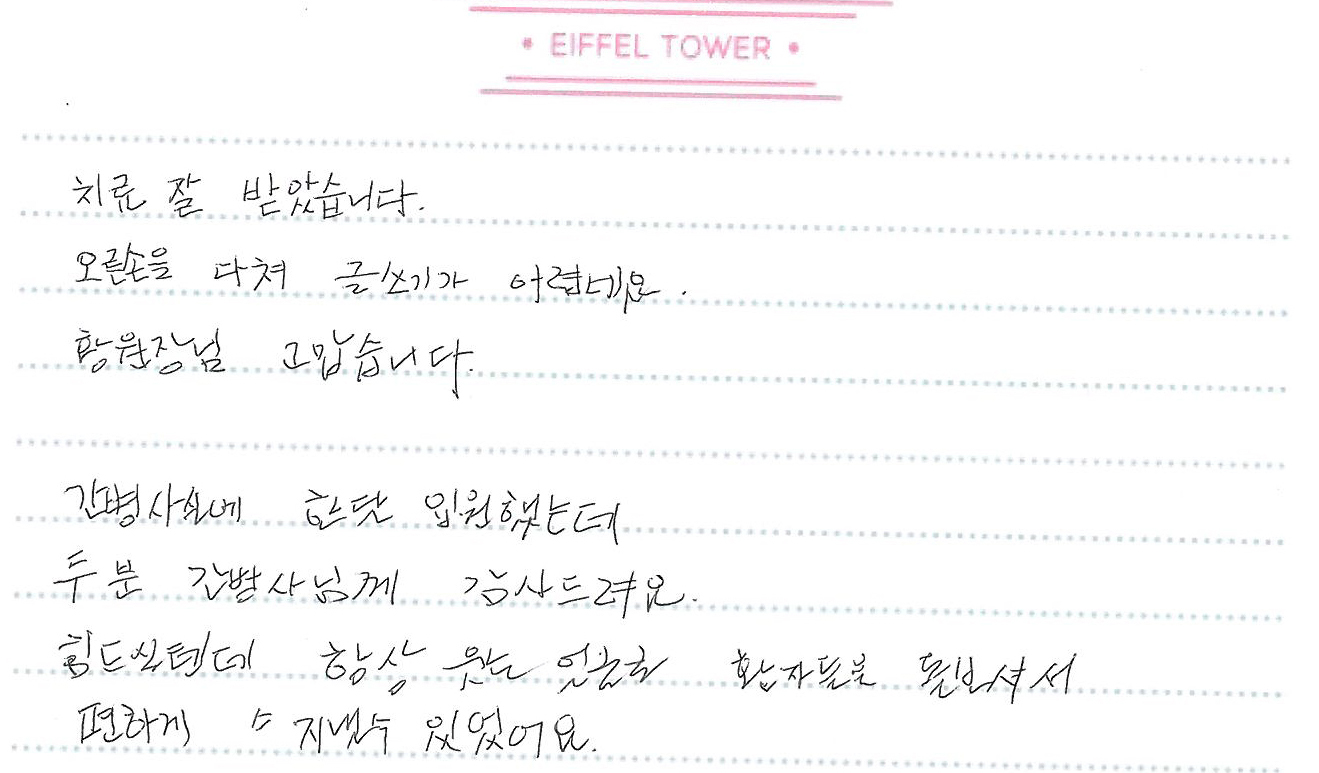 • EIFFEL TOWER •
치료 잘 받았습니다.
오른손을 다쳐 글쓰기가 어렵네요.
황원장님 고맙습니다.
간병사실에 한달 입원했는데
두분 간병사님께 감사드려요.
힘드실텐데 항상 웃는 얼굴로 환자들을 돌보셔서
편하게 지낼수 있었어요.